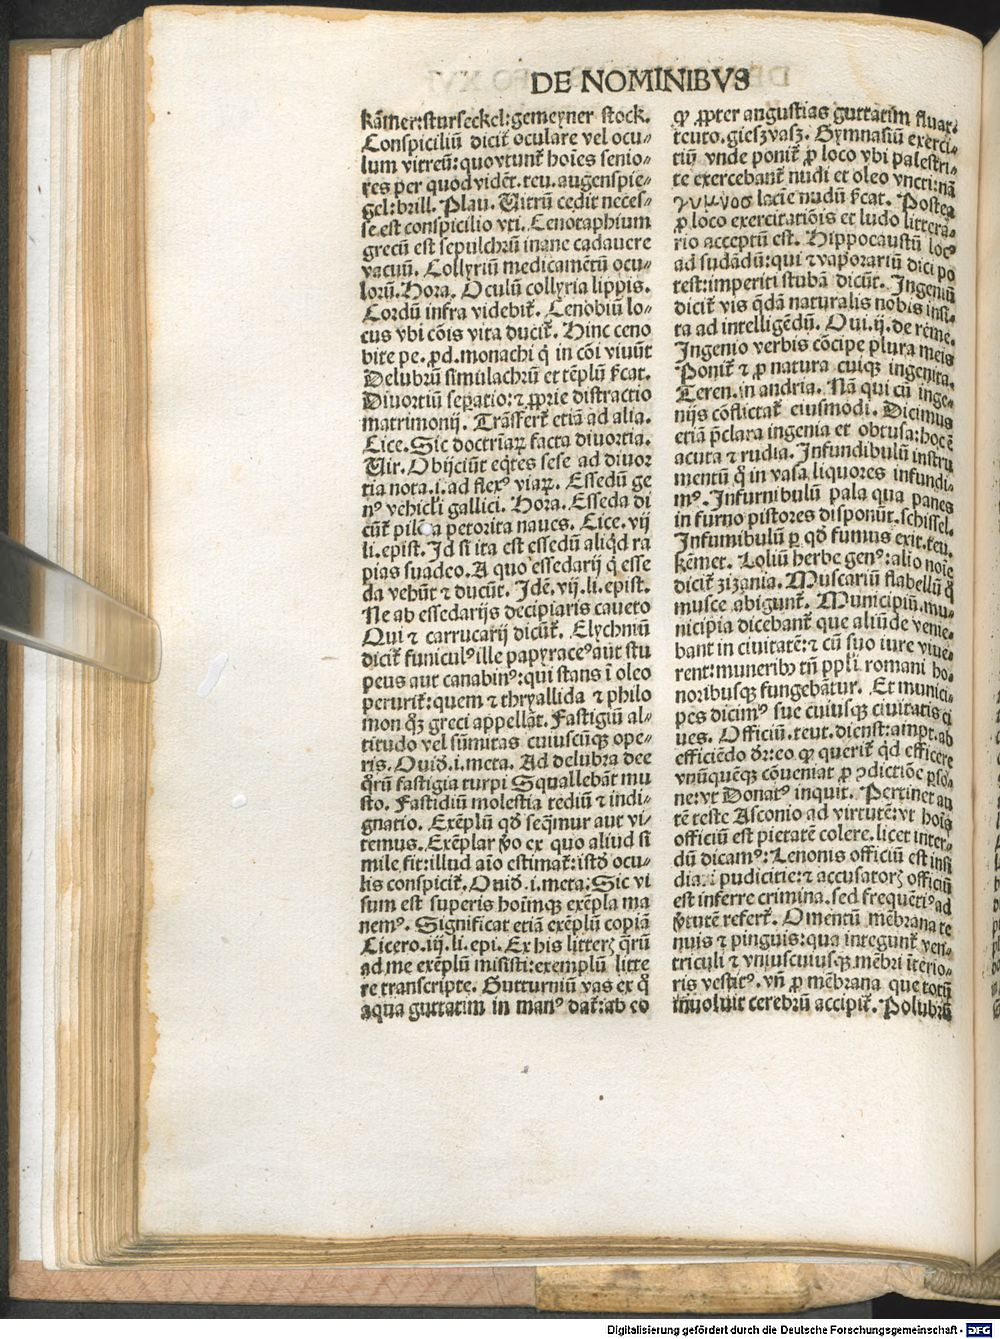 DE NOMINIBVS
kam̃er:sturseckel:gemeyner stock.
Conspiciliũ dicit᷑ oculare vel ocu⸗
lum vitreũ: quo vtunt᷑ hoĩes senio⸗
res per quod vidẽt. teu. augenspie⸗
gel: brill. Plau. Uitrũ cedit neces⸗
se est conspicilio vti. Cenotaphium
grecũ est sepulchrũ inane cadauere
vacuũ. Collyriũ medicamẽtũ ocu⸗
lorũ. Hora. Oculũ collyria lippis.
Cordũ infra videbit᷑. Cenobiũ lo⸗
cus vbi cõis vita ducit᷑. Hinc ceno
bite pe. ꝓd. monachi q̃ in cõi viuũt
Delubrũ simulachrũ et tẽplũ s̃cat.
Diuortiũ seꝑatio: ⁊ ꝓprie distractio
matrimonij. Trãsfert᷑ etiã ad alia.
Cice. Sic doctrĩaꝝ facta diuortia.
Uir. Obijciũt eq̃tes sese ad diuor
tia nota. i. ad flexꝰ viaꝝ. Essedũ ge
nꝰ vehicli gallici. Hora. Esseda di
cũt᷑ pilẽta petorita naues. Cice. vij
li. epist. Id si ita est essedũ aliq̃d ra
pias suadeo. A quo essedarij q̃ esse
da vehũt ⁊ ducũt. Idẽ. vij. li. epist.
Ne ab essedarijs decipiaris caueto
Qui ⁊ carrucarij dicũt᷑. Elychniũ
dicit᷑ funiculꝰ ille papyraceꝰ aut stu
peus aut canabinꝰ: qui stans ĩ oleo
perurit᷑: quem ⁊ thryallida ⁊ philo
mon q̃ꝫ greci appellãt. Fastigiũ al⸗
titudo vel sũmitas cuiuscũqꝫ ope⸗
ris. Ouid. i. meta. Ad delubra dee
q̃rũ fastigia turpi Squallebãt mu
sto. Fastidiũ molestia tediũ ⁊ indi⸗
gnatio. Exẽplũ qd̃ seq̃mur aut vi⸗
temus. Exẽplar ṽo ex quo aliud si
mile fit: illud aĩo estimat᷑: istd̃ ocu⸗
lis conspicit᷑. Ouid. i. meta: Sic vi
sum est superis hoĩmqꝫ exẽpla ma
nemꝰ. Significat etiã exẽplũ copiã
Cicero. iij. li. epi. Ex his litterꝭ q̃rũ
ad me exẽplũ misisti: exemplũ litte
re transcripte. Gutturniũ vas ex q̃
aqua guttatim in manꝰ dat᷑: ab eo
ꝙ ꝓpter angustias guttatim fluat.
teuto. gieszvasz. Gymnasiũ exerci⸗
tiũ vnde ponit᷑ ꝓ loco vbi palestri⸗
te exercebant᷑ nudi et oleo vncti: nã
γυμνος lacie nudũ s̃cat. Postea
ꝓ loco exercitatiõis et ludo littera⸗
rio acceptũ est. Hippocaustũ locꝰ
ad sudãdũ: qui ⁊ vaporariũ dici po
test: imperiti stubã dicũt. Ingeniũ
dicit᷑ vis q̃dã naturalis nobis insi⸗
ta ad intelligẽdũ. Oui. ij. de reme.
Ingenio verbis cõcipe plura meis
Ponit᷑ ⁊ ꝓ natura cuiqꝫ ingenita.
Teren. in andria. Nã qui cũ inge⸗
nijs cõflictat᷑ eiusmodi. Dicimus
etiã p̃clara ingenia et obtusa: hoc ẽ
acuta ⁊ rudia. Infundibulũ instru
mentũ q̃ in vasa liquores infundi⸗
mꝰ. Infurnibulũ pala qua panes
in furno pistores disponũt. schissel.
Infumibulũ ꝑ qd̃ fumus exit. teu.
kẽmet. Loliũ herbe genꝰ: alio noĩe
dicit᷑ zizania. Muscariũ flabellũ q̃
musce abigunt᷑. Municipiũ. mu⸗
nicipia dicebant᷑ que aliũde venie⸗
bant in ciuitatẽ: ⁊ cũ suo iure viue⸗
rent: munerib⁹ tñ ppl̃i romani ho⸗
noribusqꝫ fungebãtur. Et munici⸗
pes dicimꝰ sue cuiusqꝫ ciuitatis ci
ues. Officiũ. teut. dienst: ampt. ab
efficiẽdo dr̃: eo ꝙ querit᷑ q̃d efficere
vnũquẽqꝫ cõueniat ꝓ ꝯdictiõe ꝑso⸗
ne: vt Donatꝰ inquit. Pertinet au
tẽ teste Asconio ad virtutẽ: vt hoĩs
officiũ est pietatẽ colere. licet inter⸗
dũ dicamꝰ: Lenonis officiũ est insi
dia. ĩpudicitie: ⁊ accusatorꝭ officiũ
est inferre crimina. sed frequẽtiꝰ ad
ṽtutẽ refert᷑. Omentũ mẽbrana te
nuis ⁊ pinguis: qua integunt᷑ ven⸗
triculi ⁊ vniuscuiusqꝫ mẽbri ĩterio⸗
ris vestitꝰ. vñ ꝓ mẽbrana que totũ
inuoluit cerebrũ accipit᷑. Polubrũ
Digitalisierung gefördert durch die Deutsche Forschungsgemeinschaft - DFG